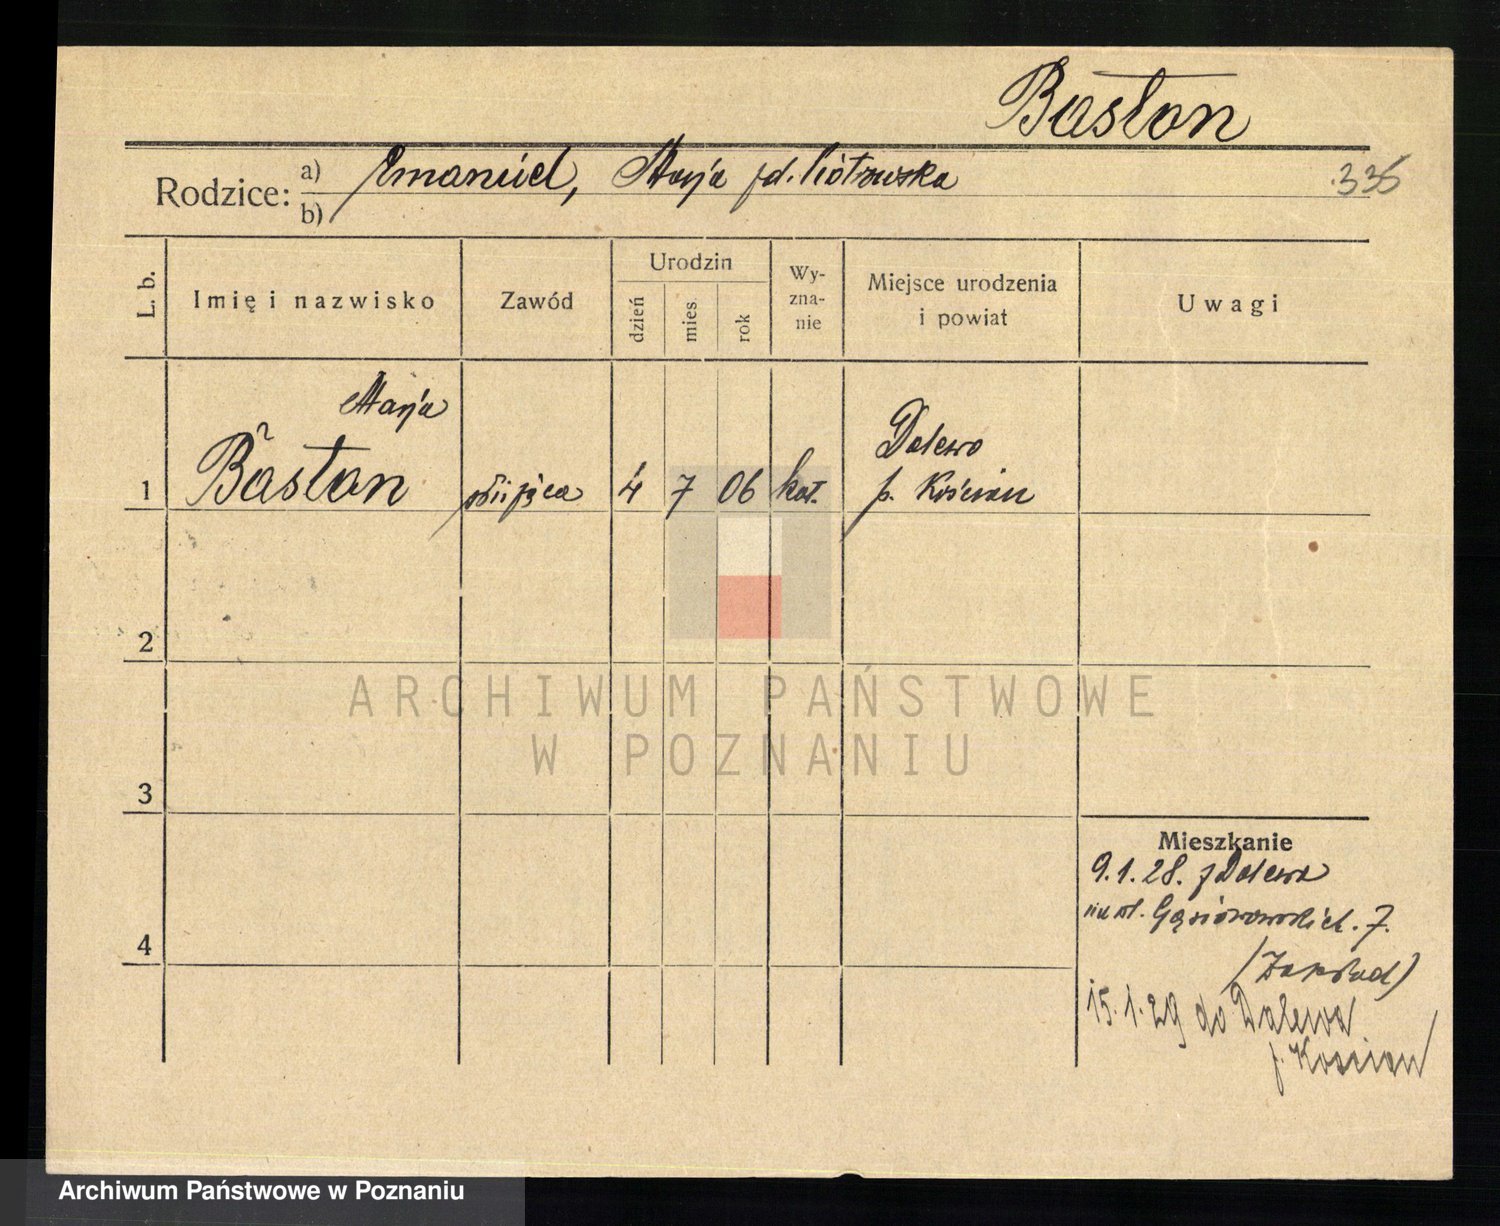 Baston
Rodzice: a) Emanuel, Marja
b)
336
L. b.
Imię i nazwisko
Zawód
Urodzin
dzień
mies
rok
Wy-
zna-
nie
Miejsce urodzenia
i powiat
Uwagi
Marja
1 Baston 4 7 06 kat.
Dalewo
p. Kościan
2
3
4
Mieszkanie
9.1.28. z Dalewa
na ul. Gąsiorowskich. 7.
(Zakład)
15.1.29 do Dalewa
p. Kościan
ARCHIWUM PAŃSTWOWE
W POZNANIU
Archiwum Państwowe w Poznaniu